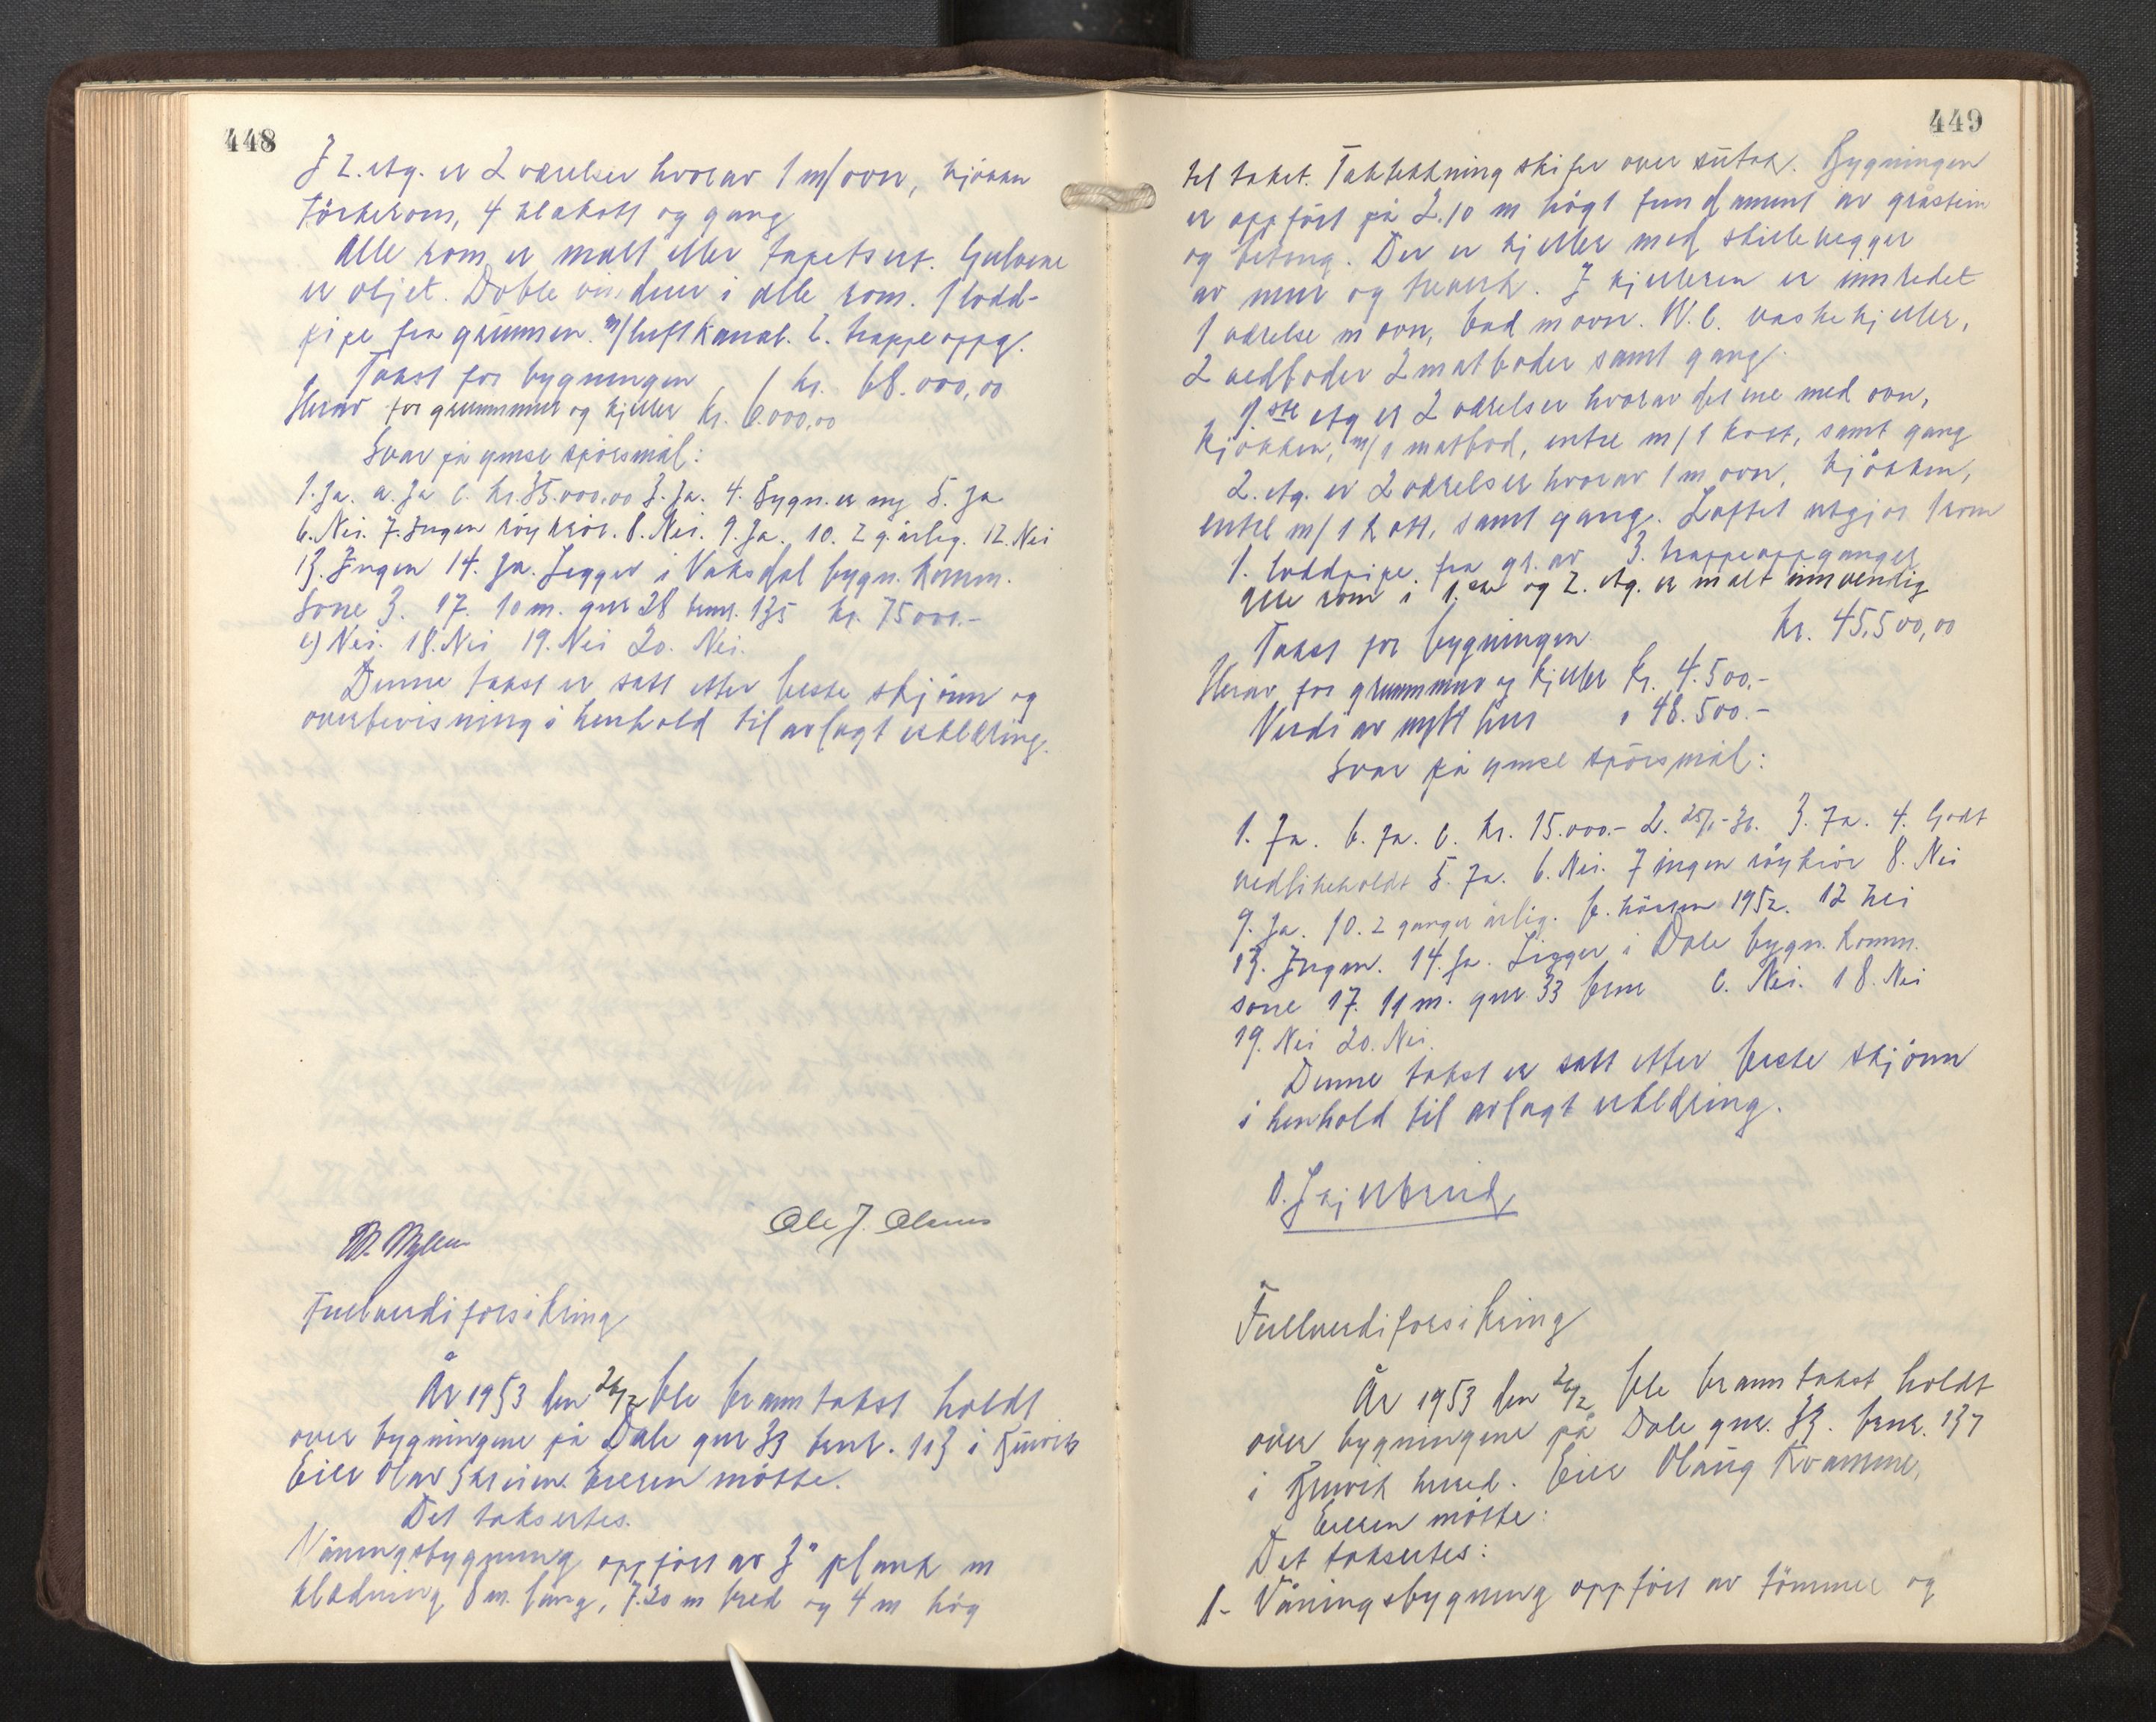 448
I 2. etg. er 2 værelser hvorav 1 m/ovn, kjøkken
törkerom, 4 kleskott og gang
Alle rom er malt eller tapetsert. Gulvene
er oljet. Doble vinduer i alle rom. 1 lodd-
pipe fra grunnen m/luftkanal. 2. trappeoppg.
Takst for bygningen kr. 68.000,00
Herav for grunnmur og kjeller kr. 6.000,00
Svar på ymse spörsmål:
1. Ja. a. Ja c. kr. 35.000,00 3. Ja. 4. Bygn. er ny 5. Ja
6. Nei. 7. Ingen röykrör. 8. Nei. 9. Ja. 10. 2 g. årleg. 12. Nei
13. Ingen 14. Ja. Ligger i Vaksdal bygn. komm.
Sone 3. 17. 10 m. gnr 28 bnr. 135 kr. 75000.-
c) Nei. 18. Nei 19. Nei 20. Nei.
Denne takst er satt etter beste skjönn og
overbevisning i henhold til avlagt erklæring.
Ole J. Olsnes
Fullverdiforsikring
År 1953 den 26/2 ble branntakst holdt
over bygningene på Dale gnr 33 bnr. 113 i Bruvik
Eier Olav Skreien. Eieren mötte.
Det taksertes.
Våningsbygning oppfört av 3" plank m
kledning, 8 m. lang, 7.20 m bred og 4 m hög
449
til taket. Taktekkning skifer over sutak. Bygningen
er oppfört på 2.10 m högt fundament av gråstein
og betong. Der er kjeller med skillevegger
av mur og treverk. I kjelleren er innredet
1 værelse m ovn, bad m ovn. W.C. vaskekjeller,
2 vedboder 2 matboder samt gang.
1.ste etg er 2 værelser hvorav det ene med ovn,
kjökken, m/1 matbod, entre m/1 kott, samt gang
2. etg. er 2 værelser hvorav 1 m ovn, kjökken,
entre m/1 kott, samt gang. Loftet utgjör 1 rom
1. loddpipe fra gr. av 3. trappeoppganger
Alle rom i 1.ste og 2. etg. er malt innvendig
Takst for bygningen kr. 45.500,00
Herav for grunnmur og kjeller kr. 4.500.-
Verdi av nytt hus " 48.500.-
Svar på ymse spörsmål:
1. Ja. b. Ja. c. kr. 15.000.- 2. 25/1-36. 3. Ja. 4. Godt
vedlikeholdt 5. Ja. 6. Nei. 7 ingen röykrör 8. Nei
9. Ja. 10. 2 ganger årlig. b. hösten 1952. 12 nei
13. Ingen. 14. Ja. Ligger i Dale bygn. komm.
sone 17. 11 m. gnr 33 bnr c. Nei. 18. Nei
19. Nei 20. Nei.
Denne takst er satt etter beste skjönn
i henhold til avlagt erklæring.
Fullverdiforsikring
År 1953 den 26/2 ble branntakst holdt
over bygningene på Dale gnr. 33. bnr. 137
i Bruvik herred. Eier Olaug Kvamme,
Eieren mötte:
Det taksertes:
1- Våningsbygning oppfört av tömmer og